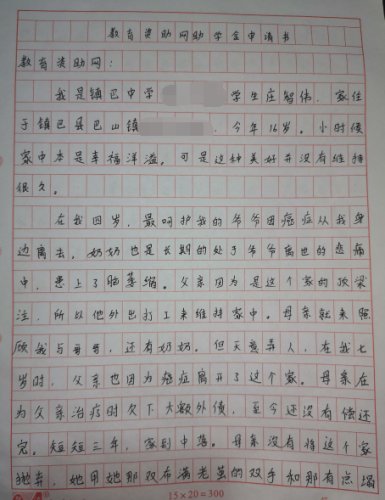 教育资助网助学金申请书
教育资助网：
我是镇巴中学 学生庄智伟，家住
于镇巴县巴山镇 ，今年16岁。小时候
家中本是幸福洋溢，可是这种美好并没有维持
很久。
在我四岁，最呵护我的爷爷因癌症从我身
边离去。奶奶也是长期的处于爷爷离世的悲痛
中，患上了脑萎缩。父亲因为是这个家的顶梁
柱，所以他外出打工来维持家中。母亲就来照
顾我与哥哥，还有奶奶。但天意弄人，在我七
岁时，父亲也因为癌症离开了这个家。母亲在
为父亲治疗时欠下大额外债，至今还没有偿还
完。短短三年，家到中落。母亲没有将这个家
抛弃，她用她那双布满老茧的双手和那有点塌
15×20=300